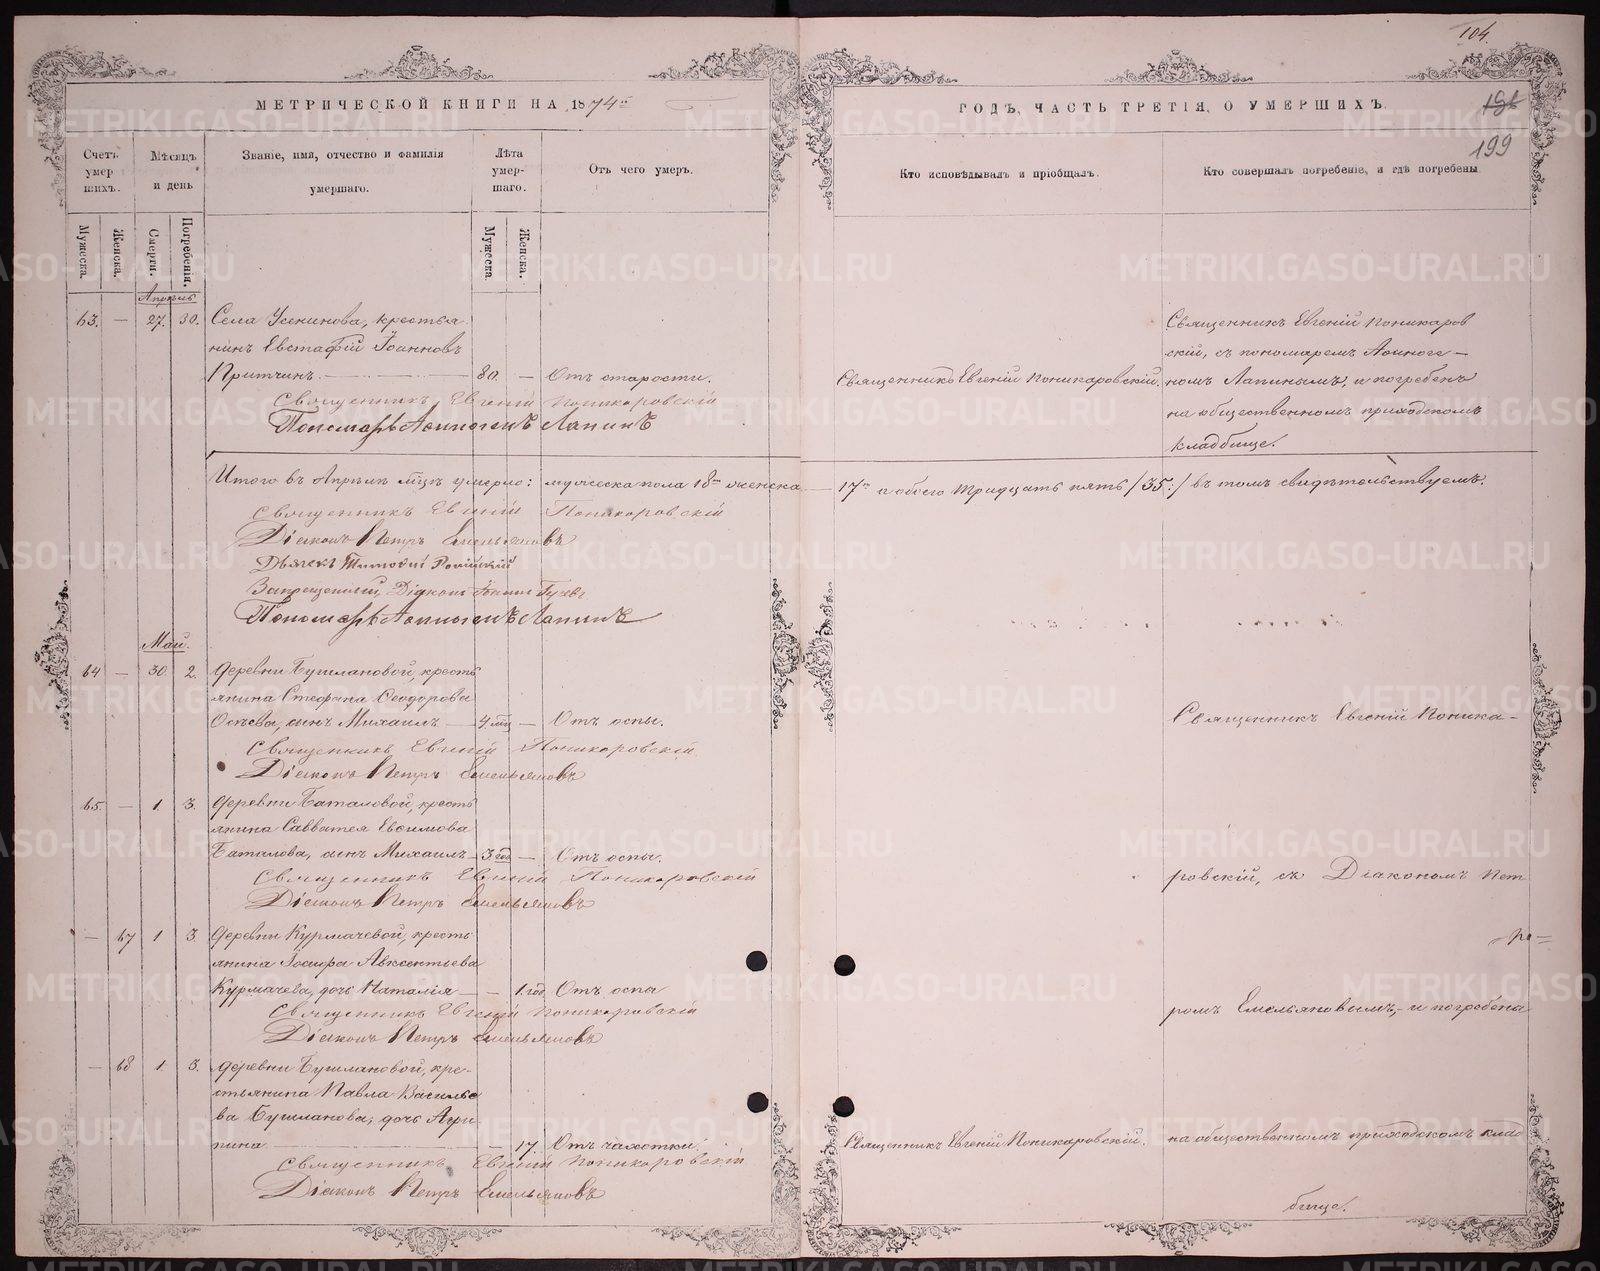 104.
МЕТРИЧЕСКОЙ КНИГИ НА 1874й
ГОДЪ, ЧАСТЬ ТРЕТІЯ, О УМЕРШИХЪ.
199
Счетъ умер шихъ.
Мѣсяцъ и день
Званіе, имя, отчество и фамилія умершаго.
Лѣта умер- шаго.
Отъ чего умеръ.
Кто исповѣдывалъ и пріобщалъ.
Кто совершалъ погребеніе, и гдѣ погребены
Мужеска.
Женска.
Смерти.
Погребенія.
Мужеска
Женска.
Апрѣль
63. — 27. 30. Села Усенинова, крестья
нинъ Евстафій Іоанновъ
Притчинъ. — 80. — Отъ старости.
Священникъ Евгеній Поникаровскій
Пономарь Аѳиногенъ Лапинъ
Священникъ Евгеній Поникаровскій.
Священникъ Евгеній Поникаров
скій, съ пономаремъ Аѳиноге-
номъ Лапинымъ, и погребенъ
на общественномъ приходскомъ
кладбище.
Итого въ Апрѣлѣ мѣцѣ умерло: мужеска пола 18ть женска — 17ть и обоего тридцать пять /35:/ въ томъ свидѣтельствуемъ.
Священникъ Евгеній Поникаровскій
Діаконъ Петръ Емельяновъ
Дьячекъ
Запрещенный Діаконъ
Пономарь Аѳиногенъ Лапинъ
Май.
64 — 30. 2. Деревни Бушлановой, кресть
янина Стефана Ѳеодорова
сынъ Михаилъ — 4 мѣц — Отъ оспы.
Священникъ Евгеній Поникаровскій
Діаконъ Петръ Емельяновъ
65. — 1. 3. Деревни Баталовой, кресть
янина Савватея Евѳимова
Баталова, сынъ Михаилъ — 3 год — Отъ оспы.
Священникъ Евгеній Поникаровскій
Діаконъ Петръ Емельяновъ
— 67 1 3. Деревни Курмачевой, кресть
янина Іосифа Авксентьева
Курмачева, дочь Наталія — — 1. год. Отъ оспы
Священникъ Евгеній Поникаровскій
Діаконъ Петръ Емельяновъ
— 68 1. 3. Деревни Бушлановой, кре-
стьянина Павла Василье
ва Бушланова, дочь Агри
пина — 17. Отъ чахотки.
Священникъ Евгеній Поникаровскій
Діаконъ Петръ Емельяновъ
Священникъ Евгеній Поникаровскій.
Священникъ Евгеній Поника-
ровскій, съ Діакономъ Пет
ро=
ромъ Емельяновымъ, и погребены
на общественномъ приходскомъ клад
бище.
METRIKI.GASO-URAL.RU